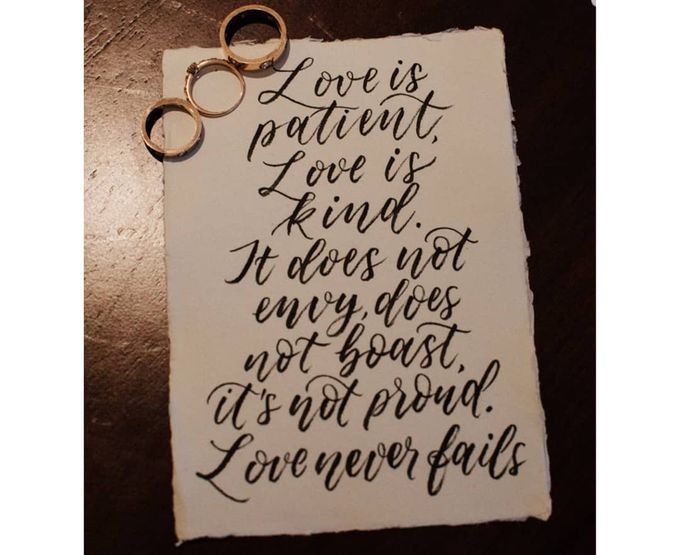 Love is
patient,
Love is
kind.
It does not
envy, does
not boast,
it's not proud.
Love never fails